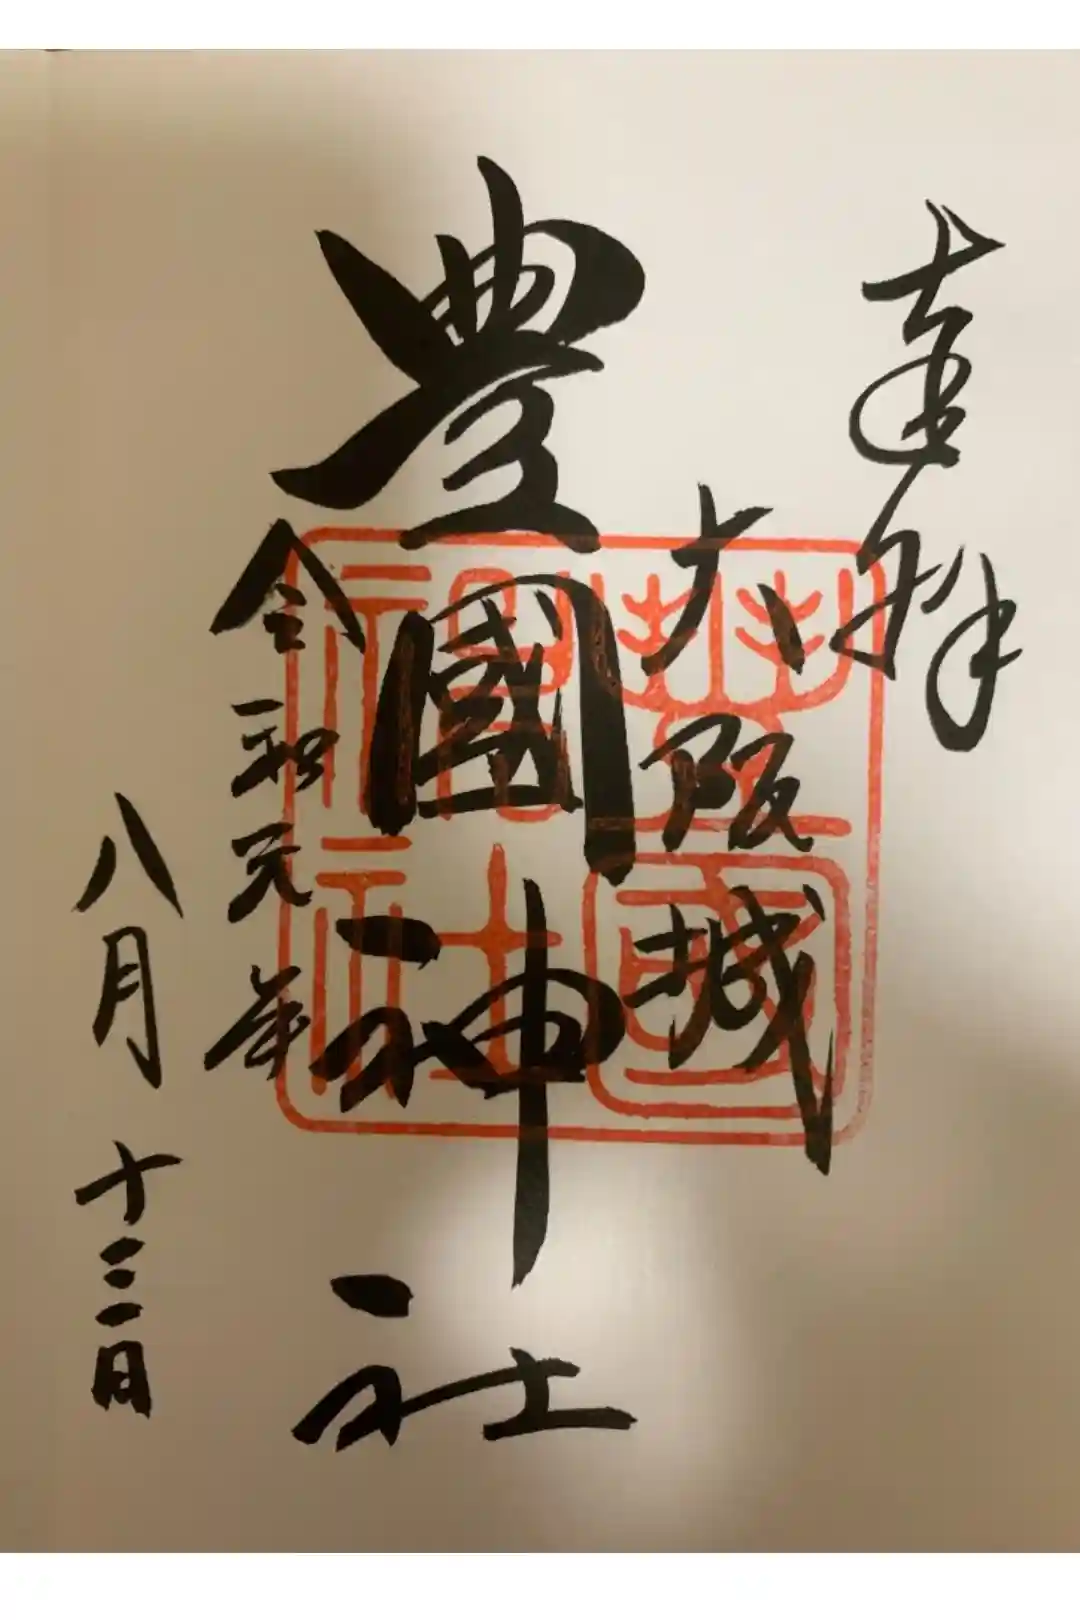 奉拝
大阪城
豊國神社
令和元年
八月十三日
豊國神社